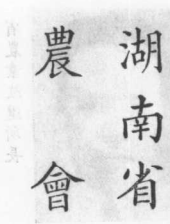 湖南省
農會